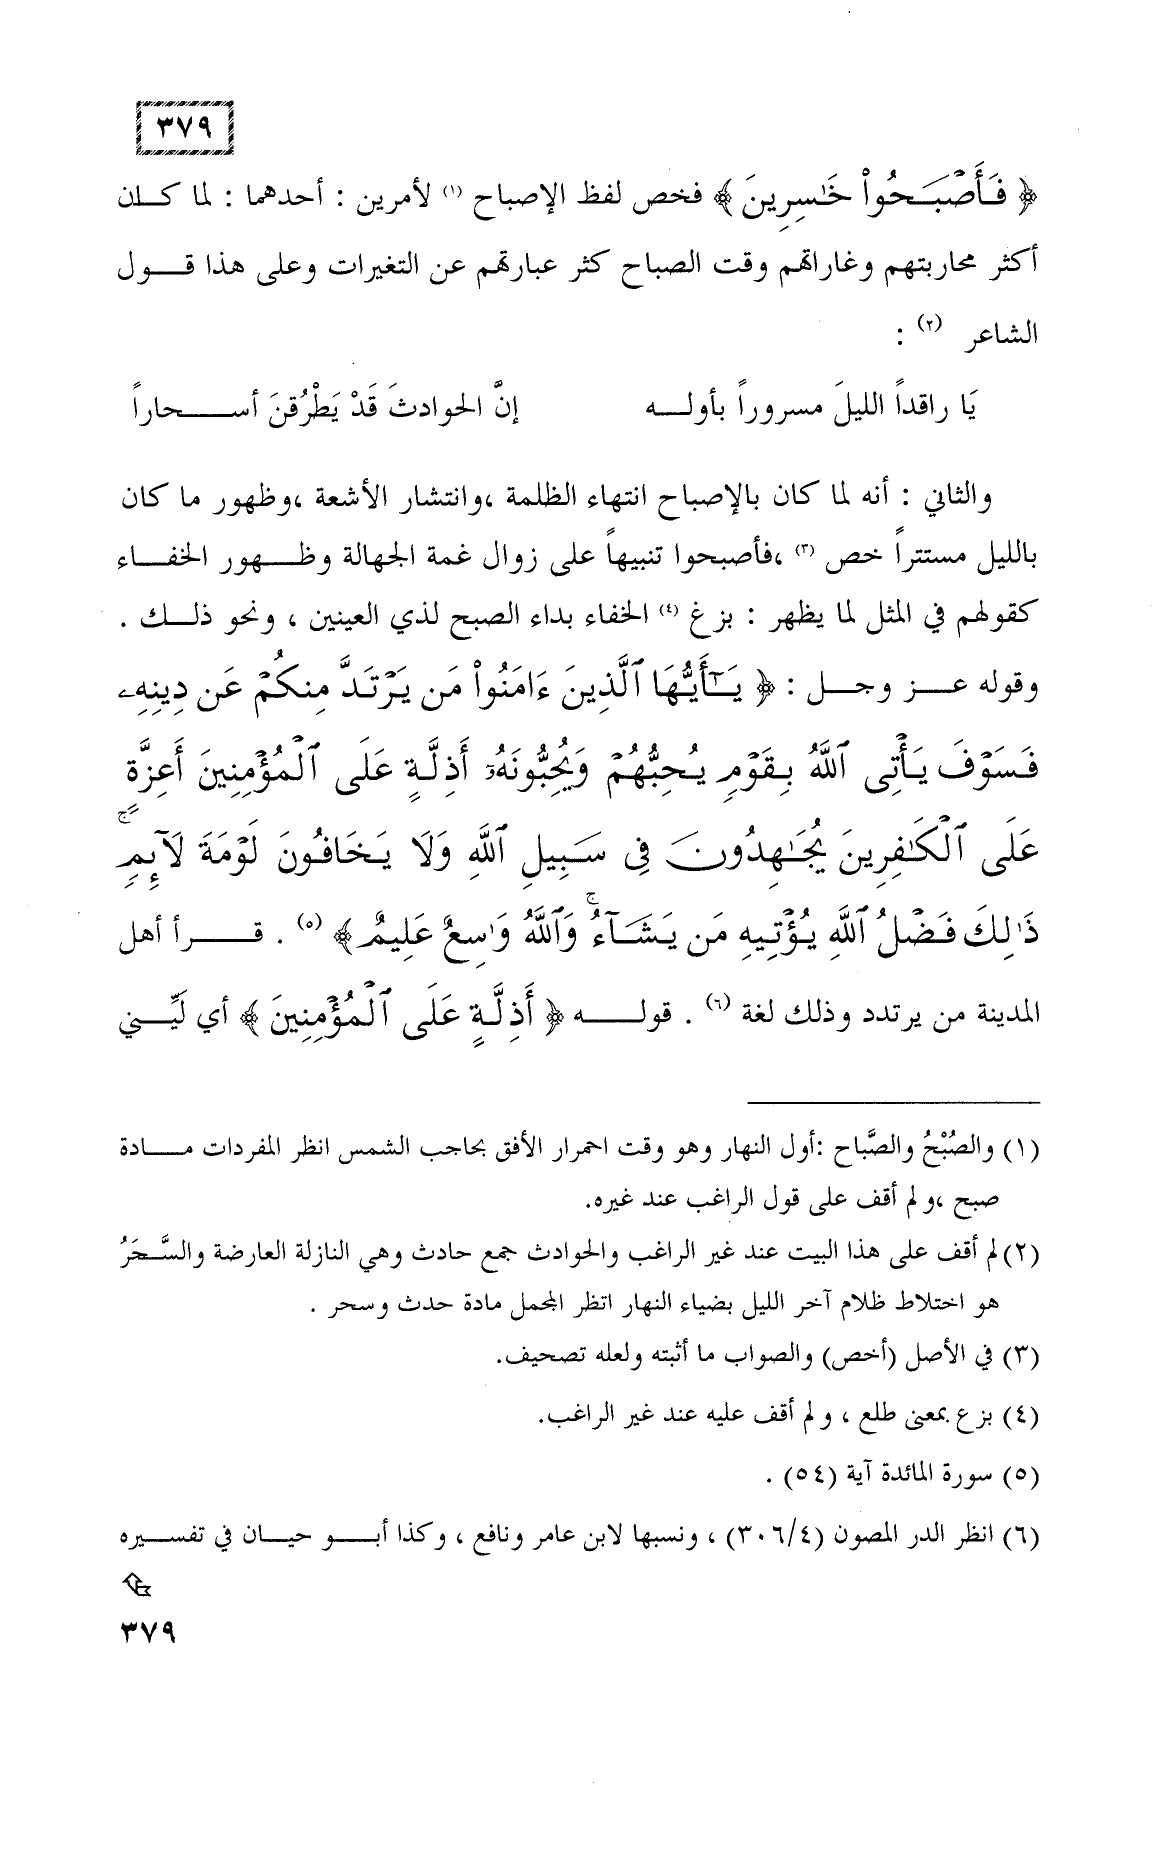 ٣٧٩
﴿ فَأَصْبَحُوا۟ خَـٰسِرِينَ ﴾ فخص لفظ الإصباح (١) لأمرين : أحدهما : لما كـان
أكثر محاربتهم وغاراتهم وقت الصباح كثر عبارتهم عن التغيرات وعلى هذا قـول
الشاعر (٢) :
يَا راقداً الليلَ مسروراً بأولـه إنَّ الحوادثَ قَدْ يَطْرُقنَ أسـحاراً
والثاني : أنه لما كان بالإصباح انتهاء الظلمة ،وانتشار الأشعة ،وظهور ما كان
بالليل مستتراً خص (٣) ،فأصبحوا تنبيهاً على زوال غمة الجهالة وظـهور الخفـاء
كقولهم في المثل لما يظهر : بزغ (٤) الخفاء بداء الصبح لذي العينين ، ونحو ذلـك .
وقوله عـز وجـل : ﴿ يَـٰٓأَيُّهَا ٱلَّذِينَ ءَامَنُوا۟ مَن يَرْتَدَّ مِنكُمْ عَن دِينِهِۦ
فَسَوْفَ يَأْتِى ٱللَّهُ بِقَوْمٍ يُحِبُّهُمْ وَيُحِبُّونَهُۥٓ أَذِلَّةٍ عَلَى ٱلْمُؤْمِنِينَ أَعِزَّةٍ
عَلَى ٱلْكَـٰفِرِينَ يُجَـٰهِدُونَ فِى سَبِيلِ ٱللَّهِ وَلَا يَخَافُونَ لَوْمَةَ لَآئِمٍ ۚ
ذَٰلِكَ فَضْلُ ٱللَّهِ يُؤْتِيهِ مَن يَشَآءُ ۚ وَٱللَّهُ وَٰسِعٌ عَلِيمٌ ﴾ (٥) . قـرأ أهل
المدينة من يرتدد وذلك لغة (٦) . قولـه ﴿ أَذِلَّةٍ عَلَى ٱلْمُؤْمِنِينَ ﴾ أي لَيِّـني
(١) والصُبْحُ والصَّباح :أول النهار وهو وقت احمرار الأفق بحاجب الشمس انظر المفردات مـادة
صبح ،و لم أقف على قول الراغب عند غيره.
(٢) لم أقف على هذا البيت عند غير الراغب والحوادث جمع حادث وهي النازلة العارضة والسَّحَرُ
هو اختلاط ظلام آخر الليل بضياء النهار اتظر المجمل مادة حدث وسحر .
(٣) في الأصل (أخص) والصواب ما أثبته ولعله تصحيف.
(٤) بزع بمعنى طلع ، و لم أقف عليه عند غير الراغب.
(٥) سورة المائدة آية (٥٤) .
(٦) انظر الدر المصون (٣٠٦/٤) ، ونسبها لابن عامر ونافع ، وكذا أبـو حيـان في تفسيره
٣٧٩